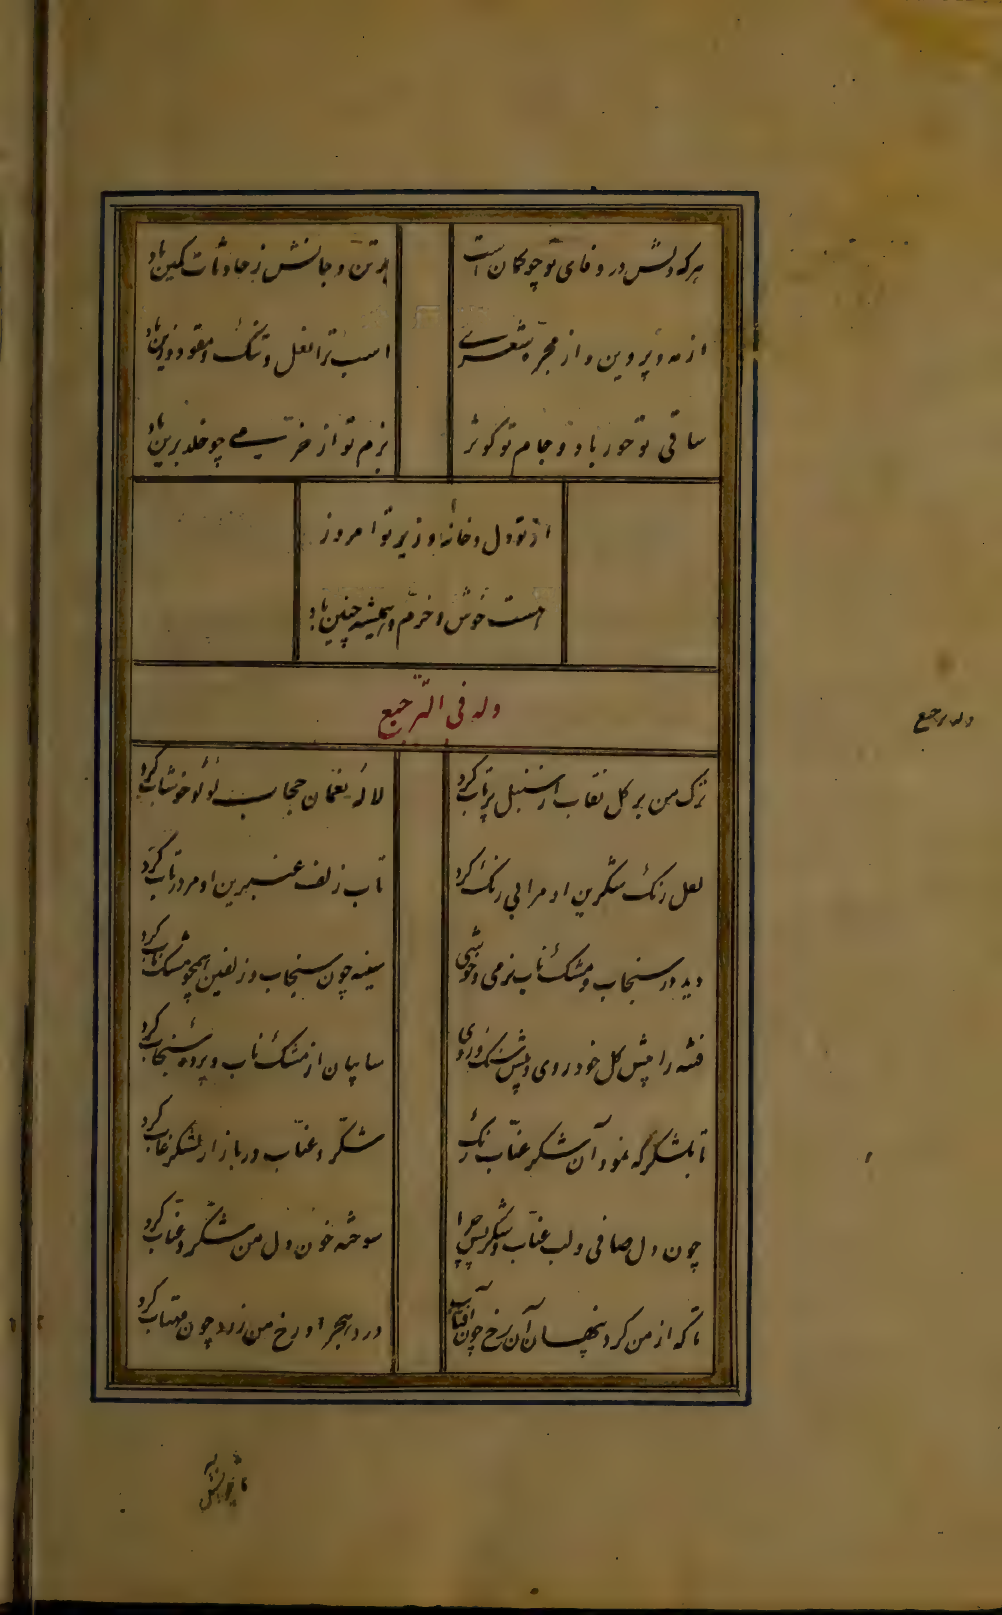 هرکه دلش در وفای تو چو کمان است
بر تن و جانش ز حادثات کمین باد
از مه و پروین و از مجره شعری
اسب ترا نعل و تنگ و مقود و زین باد
ساقی تو حور باد و جام تو کوثر
بزم تو از خرمی چو خلد برین باد
از تو دل و خانه وزیر تو امروز
هست خوش و خرم و همیشه چنین باد
وله فی الترجیع
وله ترجیع
ترک من بر کل نقاب از سنبل پرتاب کرد
لاله نعمان حجاب لؤلؤ خوشاب کرد
لعل رنک شکرین او مرا بی رنک کرد
تاب زلف عنبرین او مرا در تاب کرد
دید در سنجاب و مشک ناب نرمی و خوشی
سینه چون سنجاب و زلفین همچو مشک ناب کرد
فتنه را پیش کل خود روی و پیش
سایبان از مشک ناب و پرده سنجاب کرد
تا بلشکرکه نمود آن شکر عناب رنک
شکر و عناب در بازار لشکر کرد
چون دل صافی و لب عناب و شکر پس چرا
سوخته خون دل من شکر و عناب کرد
تا که از من کرد پنهان آن رخ چون آفتاب
درد هجر او رخ من زرد چون مهتاب کرد